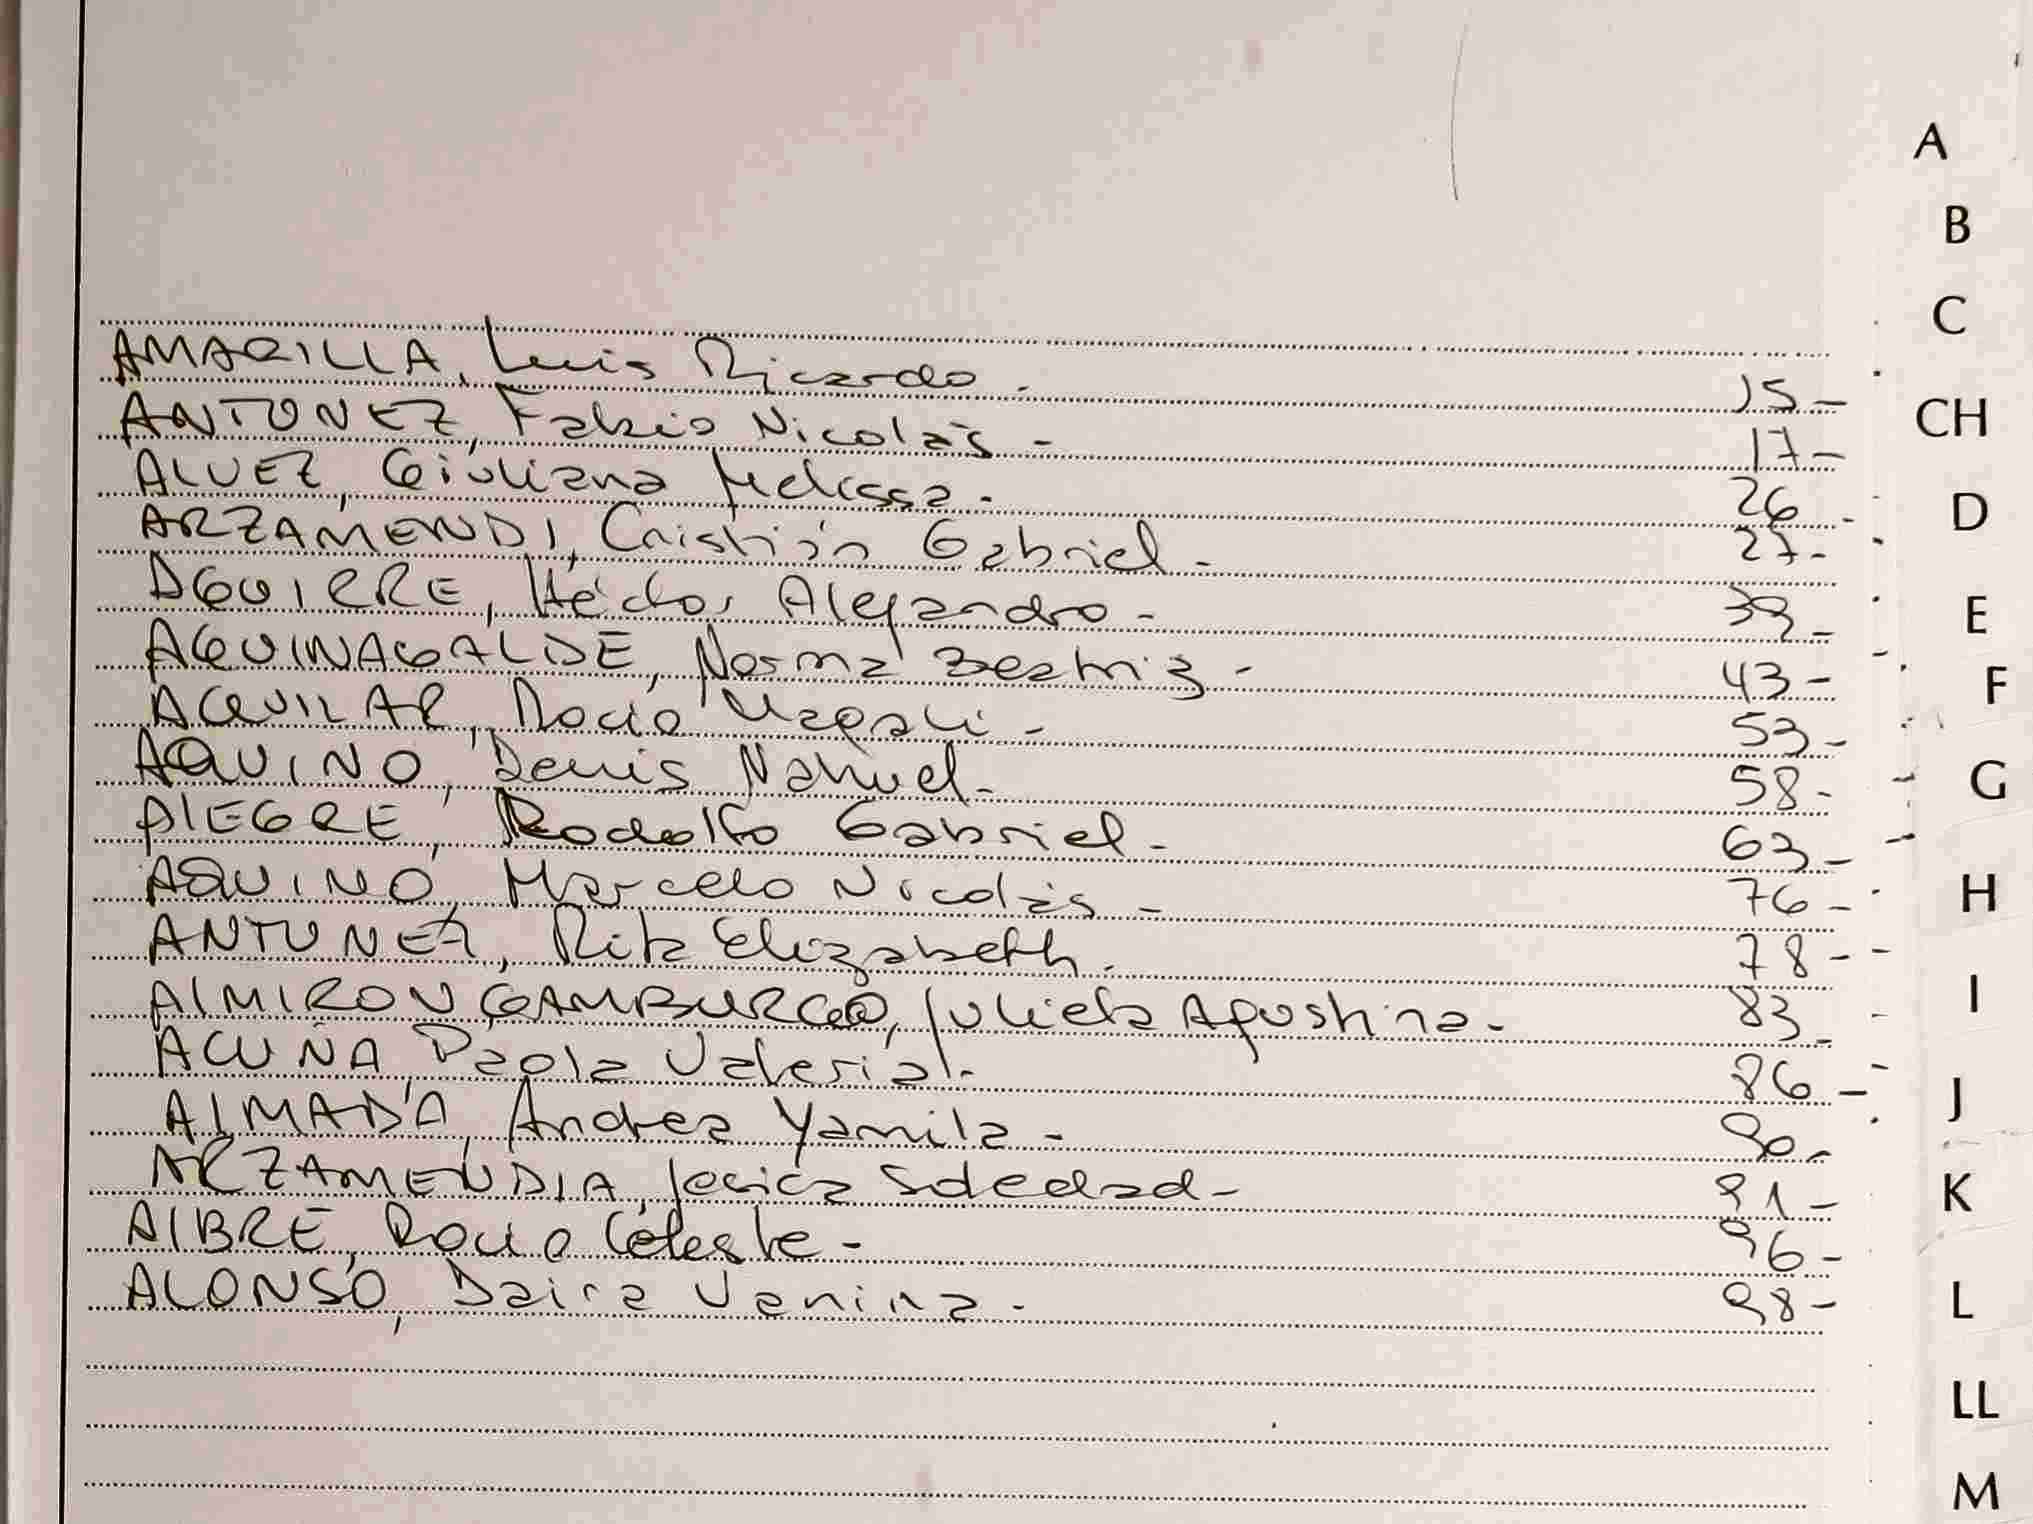 AMARILLA, Luis Ricardo. 15-
ANTONEZ, Fabio Nicolás - 17-
ALVEZ, Giuliana Melissa. 26-
ARZAMENDI, Cristián Gabriel - 27-
AGUIRRE, Héctor Alejandro - 39-
AGUINAGALDE, Norma Beatriz - 43-
AGUILAR, Rocio Magali - 53-
AQUINO, Denis Nahuel - 58-
ALEGRE, Rodolfo Gabriel - 63-
AQUINO, Marcelo Nicolás - 76-
ANTUNEZ, Rita Elizabeth. 78-
ALMIRON GAMBURGO, Julieta Agustina - 83-
ACUÑA, Paola Valeria - 86-
ALMADA, Andrea Yamila - 90-
ARZAMENDIA, Jesica Soledad - 91-
ALBRE, Rocio Celeste - 96-
ALONSO, Daira Vanina - 98-
A
B
C
CH
D
E
F
G
H
I
J
K
L
LL
M